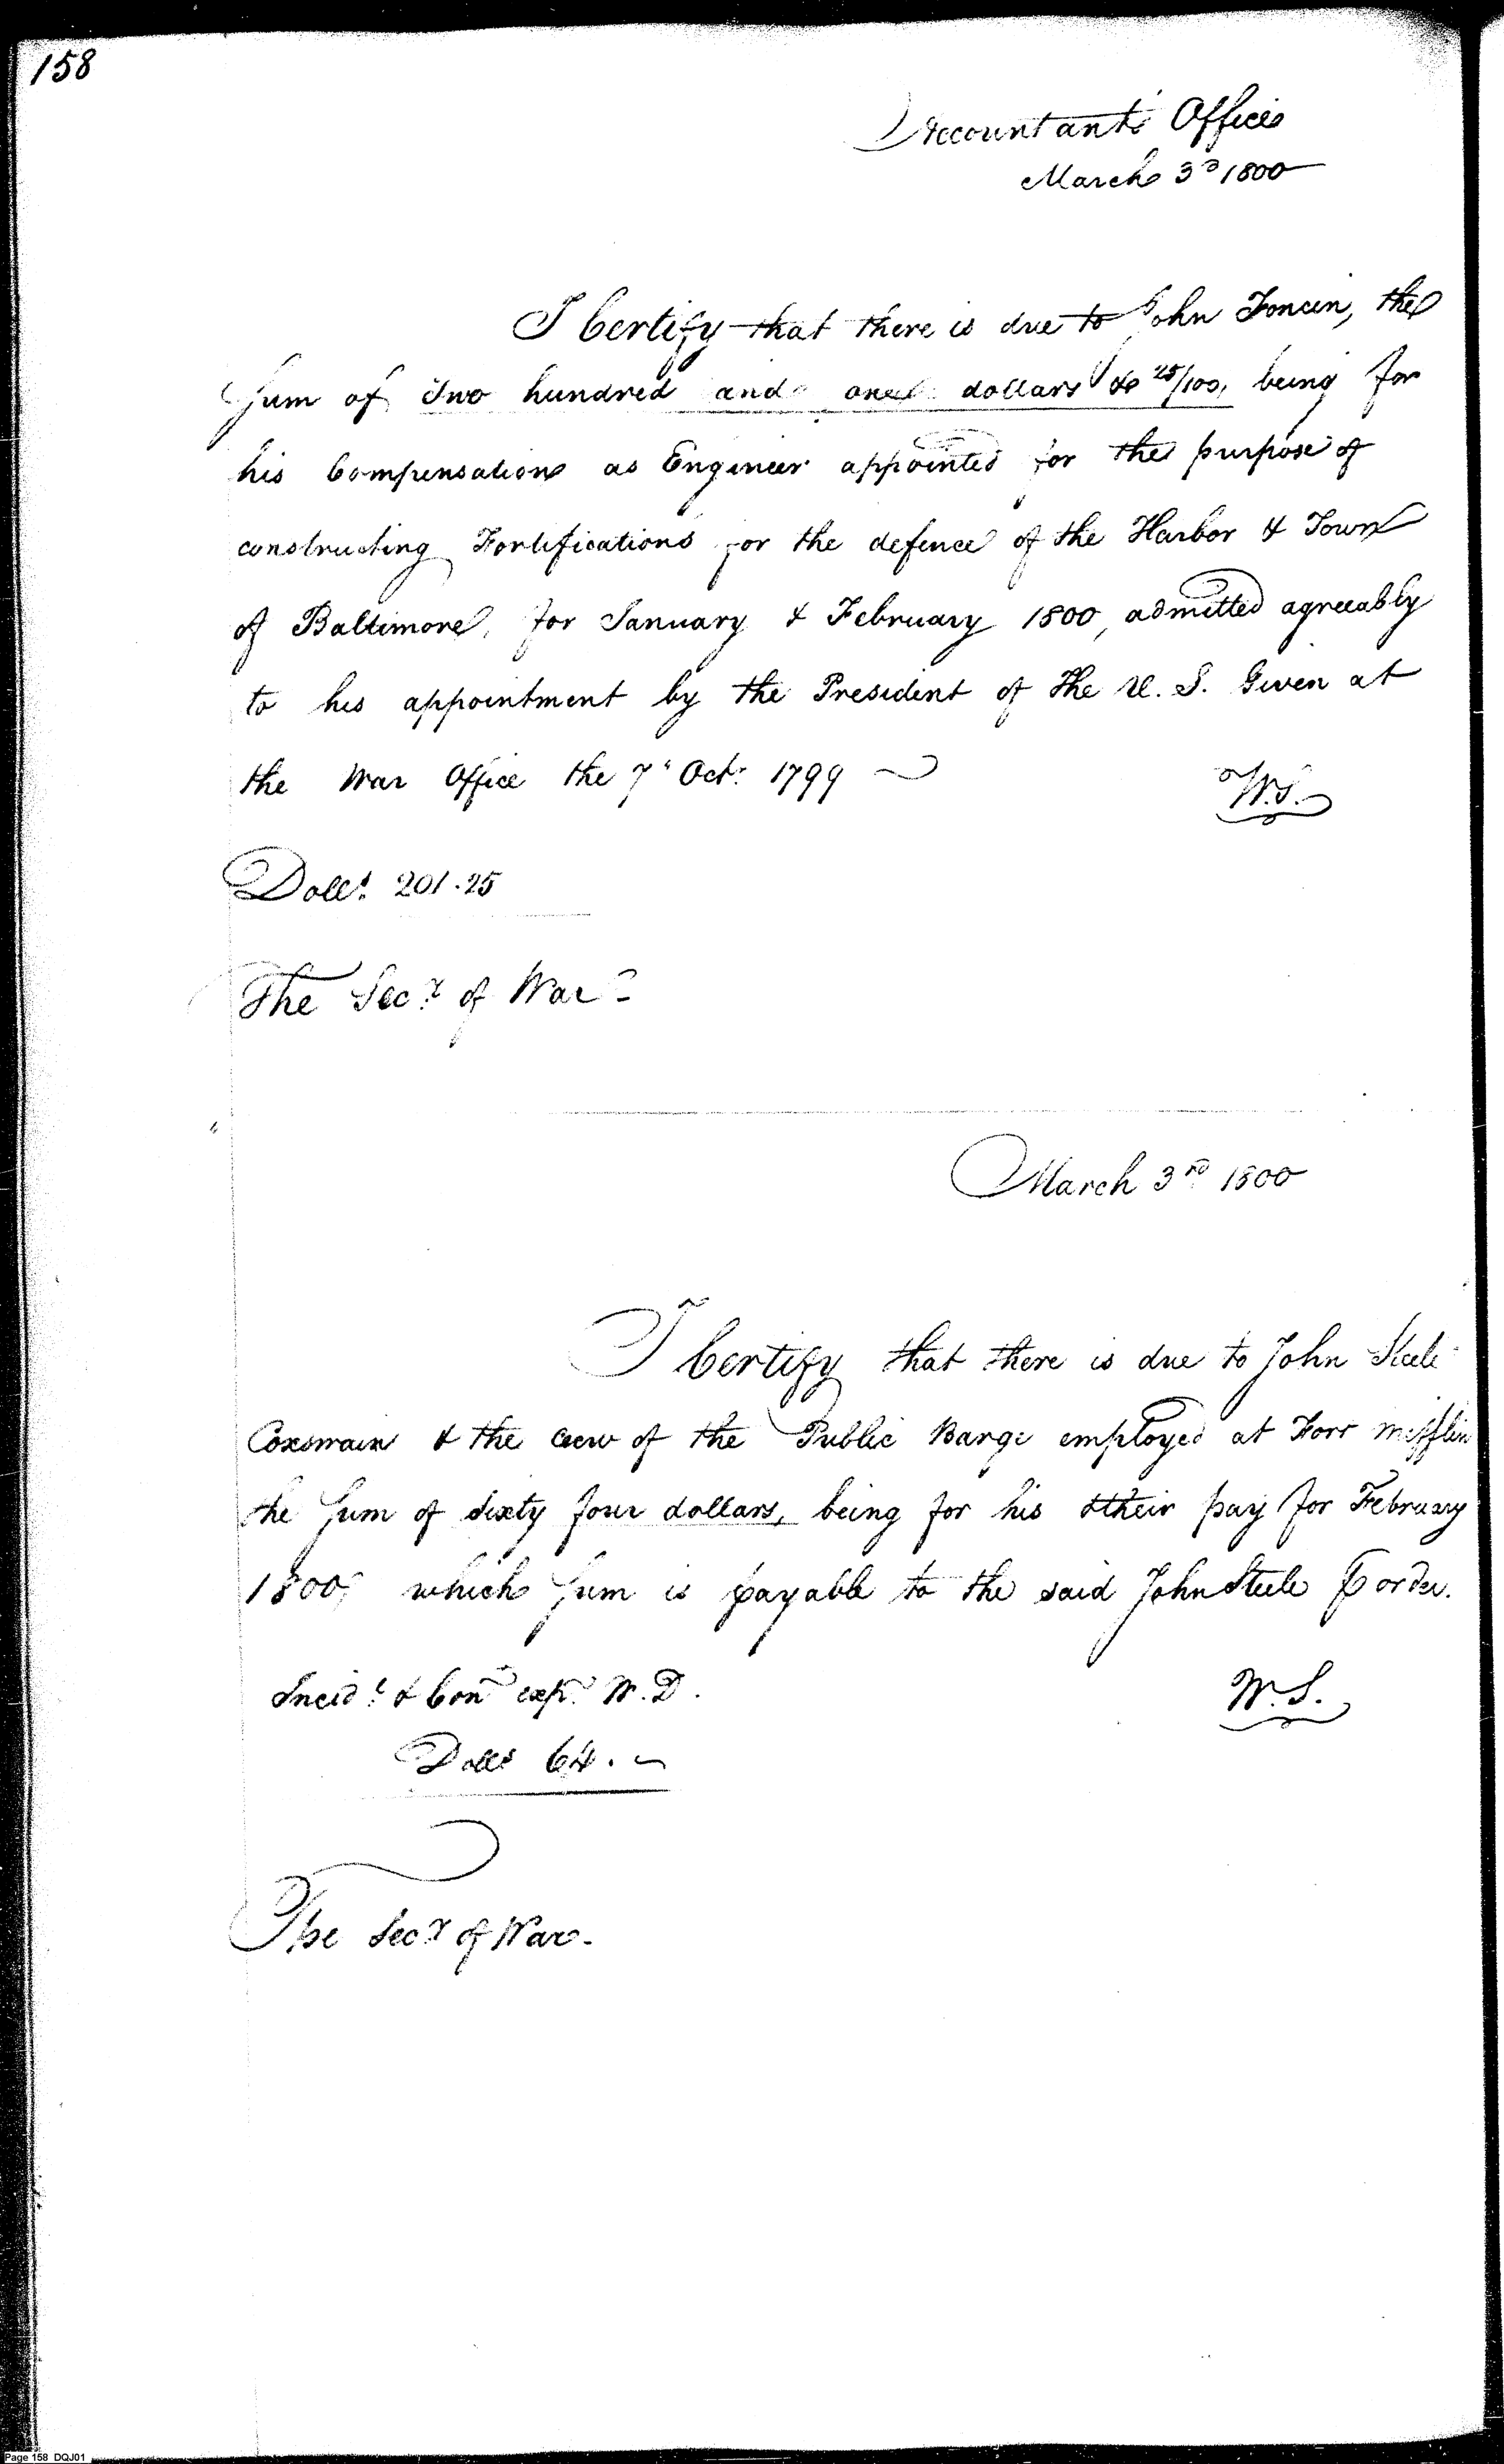 158
Accountant's Office
March 3d 1800
I Certify that there is due to John Foncin, the
Sum of Two hundred and one dollars & 25/100, being for
his Compensation as Engineer appointed for the purpose of
constructing Fortifications for the defence of the Harbor & Town
of Baltimore, for January & February 1800, admitted agreeably
to his appointment by the President of the U. S. Given at
the War Office the 7th Octr. 1799
W.S.
Dolls. 201.25
The Secy. of War
March 3rd 1800
I Certify that there is due to John Steele
Coxswain & the crew of the Public Barge employed at Fort Mifflin
the Sum of Sixty four dollars, being for his & their pay for February
1800, which Sum is payable to the said John Steele or order.
Incidl. & Cont. exps. W. D.
W. S.
Dolls 64.
The Secy. of War.
Page 158 DQJ01